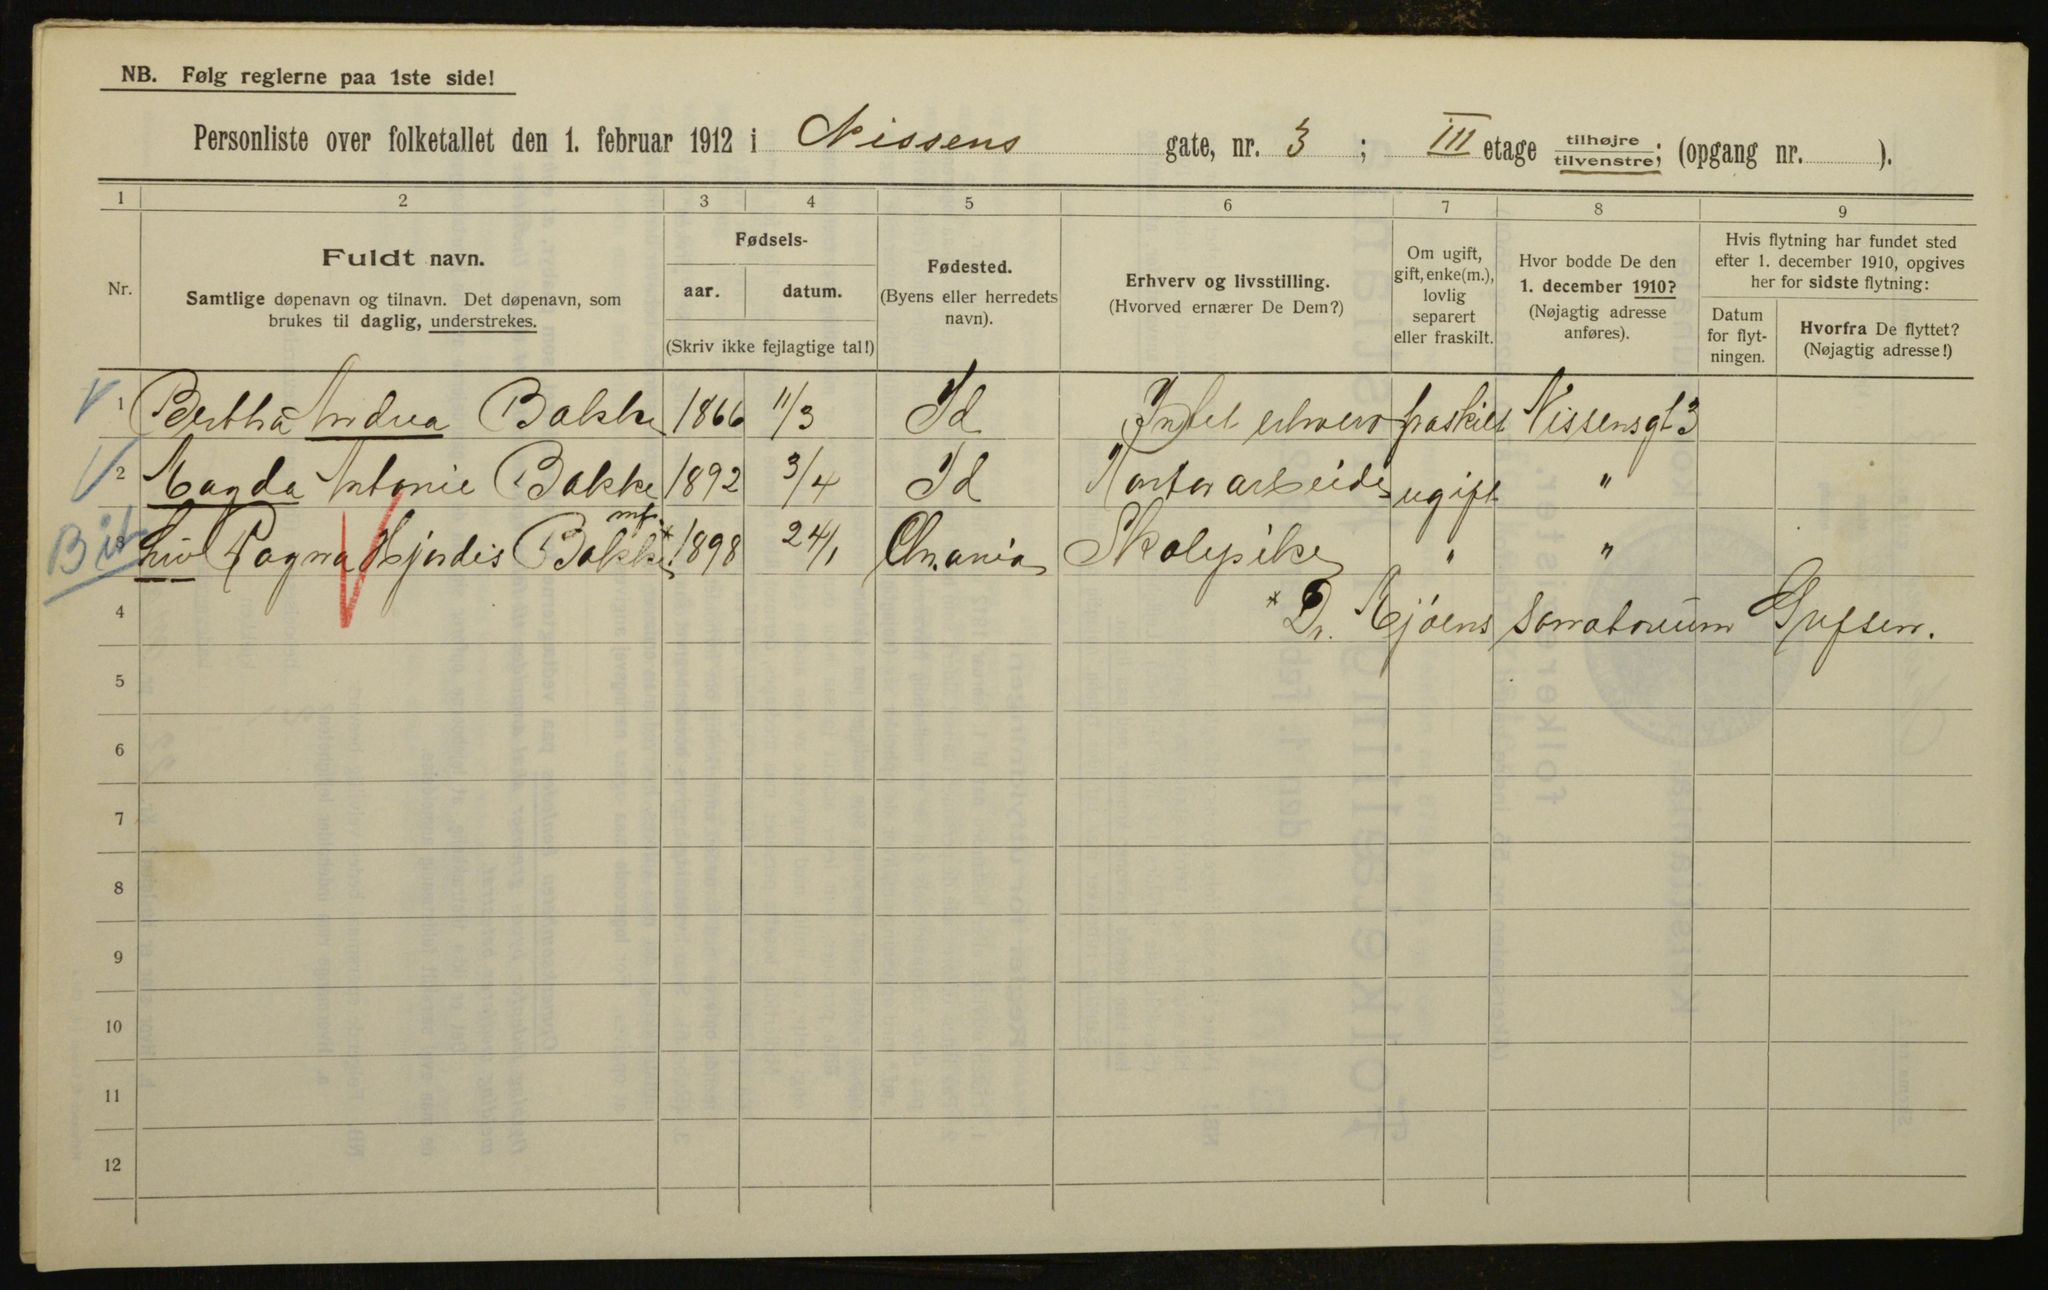 NB. Følg reglerne paa 1ste side!
Personliste over folketallet den 1. februar 1912 i Nissens gate, nr. 3 ; III etage tilhøjre tilvenstre; (opgang nr. ).
1 2 3 4 5 6 7 8 9
Nr.
Fuldt navn.
Samtlige døpenavn og tilnavn. Det døpenavn, som
brukes til daglig, understrekes.
Fødsels-
aar. datum.
(Skriv ikke fejlagtige tal!)
Fødested.
(Byens eller herredets
navn).
Erhverv og livsstilling.
(Hvorved ernærer De Dem?)
Om ugift,
gift, enke(m.),
lovlig
separert
eller fraskilt.
Hvor bodde De den
1. december 1910?
(Nøjagtig adresse
anføres).
Hvis flytning har fundet sted
efter 1. december 1910, opgives
her for sidste flytning:
Datum
for flyt-
ningen.
Hvorfra De flyttet?
(Nøjagtig adresse!)
1 Bertha Andrea Bakke 1866 11/3 Id Intet erhverv fraskilt Nissensgt 3
2 Magda Antonie Bakke 1892 3/4 Id Kontorarbeide ugift "
mf.
3 Liv Ragna Hjørdis Bakke * 1898 24/1 Chr.ania Skolepike " "
4 * Dr. Mjøens sanatorium Grefsen.
5
6
7
8
9
10
11
12